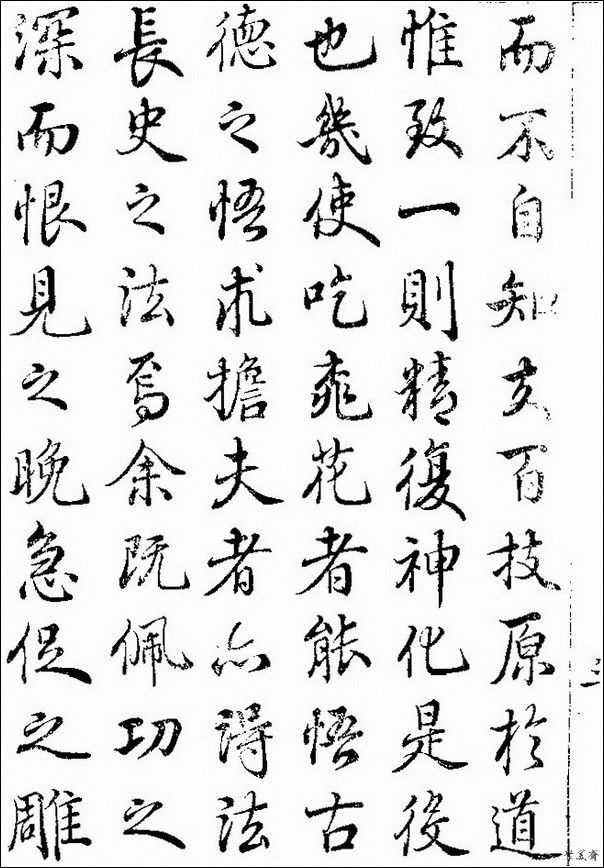 而不自知夫百技原於道
惟致一則精復神化是役
也幾使吃桃花者能悟古
德之悟求擔夫者亦得法
長史之法焉余既佩功之
深而恨見之晚急促之雕